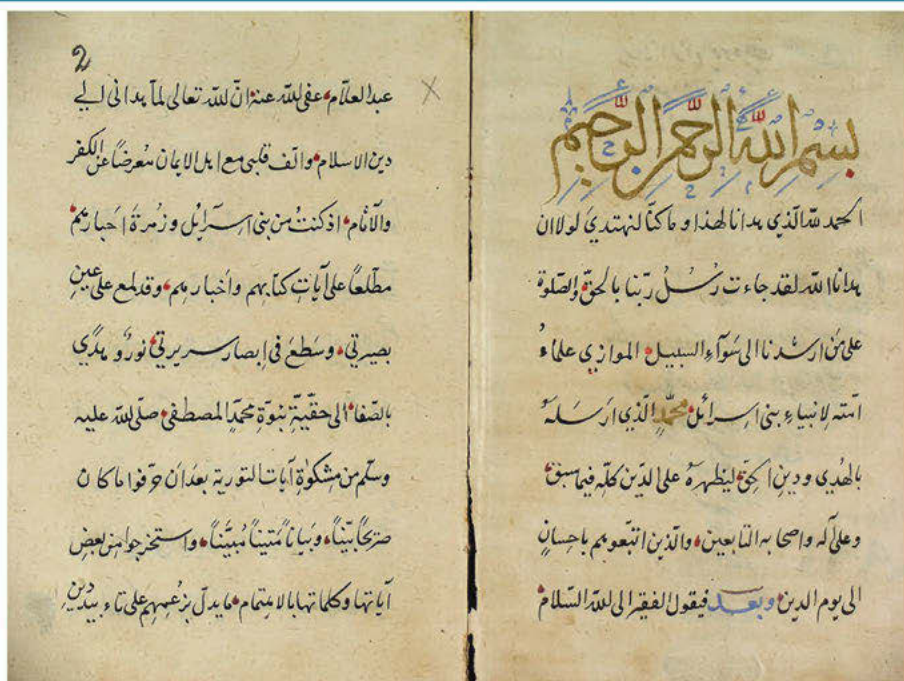 بسم الله الرحمن الرحيم
الحمد لله الذي هدانا لهذا وما كنّا لنهتدي لولا ان
هدانا الله لقد جاءت رُسُلُ ربّنا بالحقّ والصّلوة
على من ارشدنا الى سَوآءِ السبيل الموازي علماءُ
امّته لانبياءِ بنى اسرائل محمّدٍ الّذي ارسَلهُ
بالهُدي ودينِ الحقّ ليظهرهُ على الدّين كلّه فيما سبق
وعلى آله واصحابه التابعين والّذين اتبعوهم باحسانٍ
الى يوم الدين وبعد فيقول الفقير الى لله السّلام
2
عبد العلاّم عفى لله عنه انّ لله تعالى لمّا هدانى الي
دين الاسلام والّف قلبى مع اهل الايمان مُعرضًا عن الكفر
والآثام اذ كنتُ من بنى اسرآئل وزُمرة احبارهم
مطّلعاً على آياتِ كتابهم وأخبارهم وقد لمع على عينِ
بصيرتي وسَطَعَ في ابصار سريرتي نورٌ وهدًي
بالصّفا الى حقّيّة نبوّة محمّد المصطفى صلّى لله عليه
وسلّم من مشكوٰة آيات التورية بعد ان حرّفوا ما كان
صريحًا بيّناً وبَياناً مُتيناً مُبيَّناً واستخرجوا من بعض
آياتها وكلماتها بالاهتمام ما يدلّ بزعمهم على تاءبيد دين